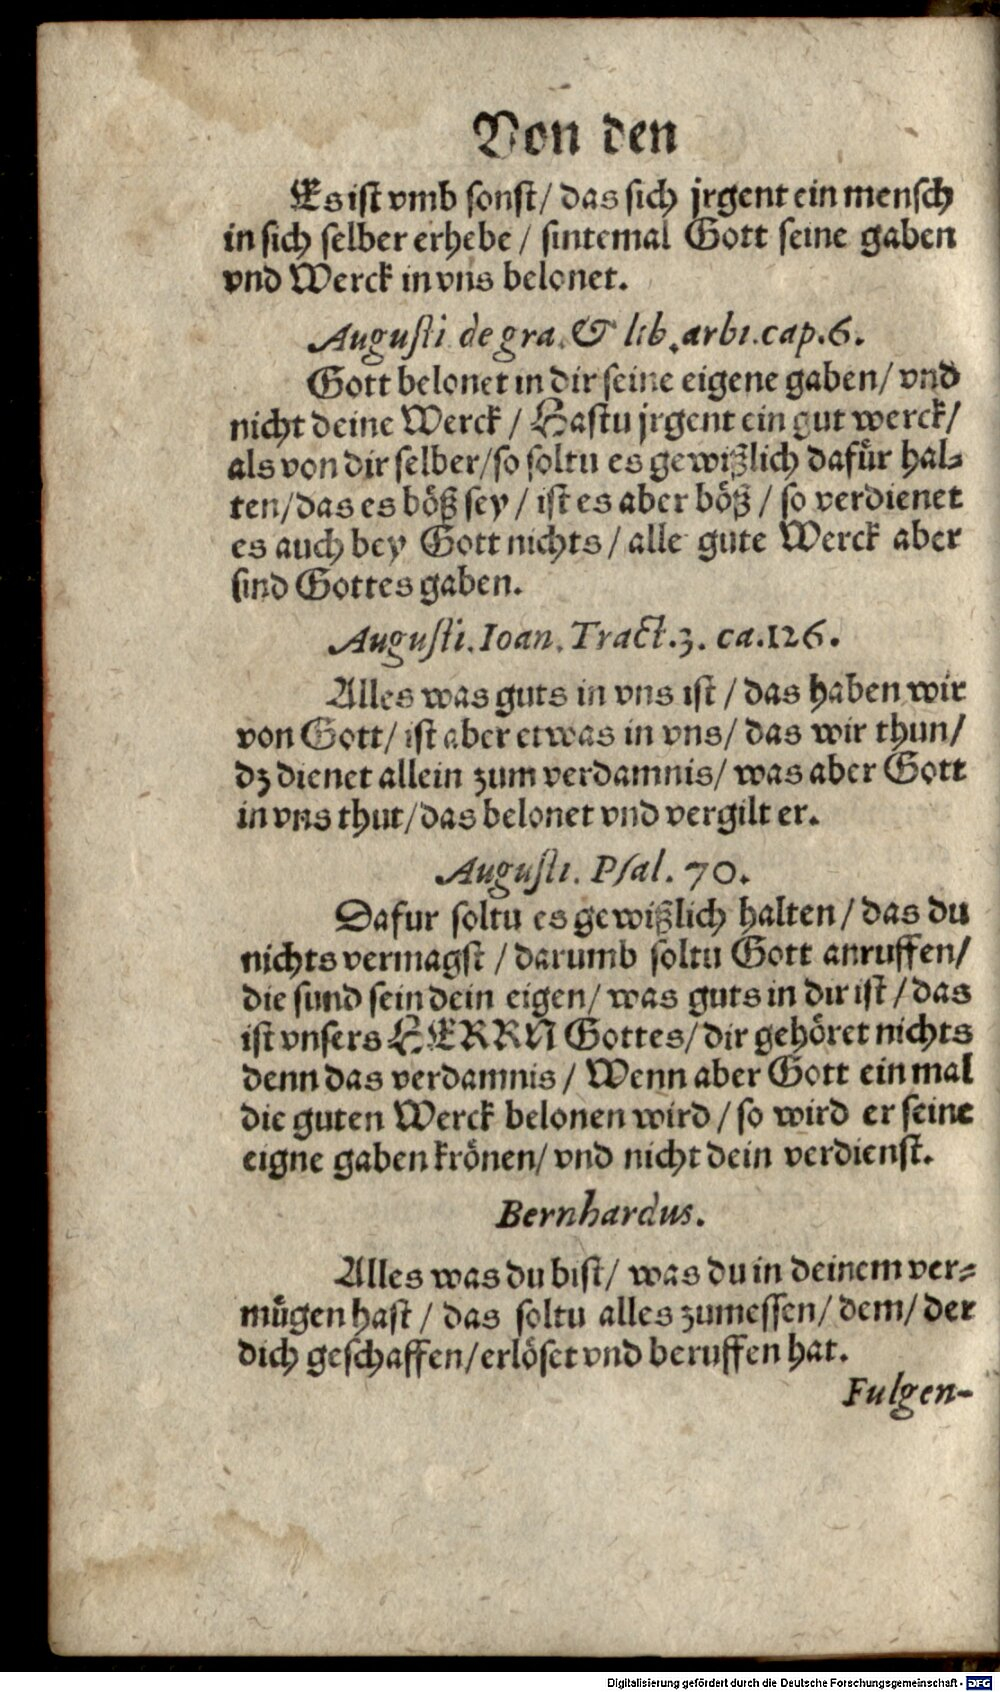 Von den
Es ist vmb sonst/ das sich jrgent ein mensch
in sich selber erhebe / sintemal Gott seine gaben
vnd Werck in vns belonet.
Augusti de gra. & lib. arbi. cap. 6.
Gott belonet in dir seine eigene gaben/ vnd
nicht deine Werck / Hastu jrgent ein gut werck/
als von dir selber/so soltu es gewißlich dafür hal-
ten/das es böß sey / ist es aber böß / so verdienet
es auch bey Gott nichts / alle gute Werck aber
sind Gottes gaben.
Augusti. Ioan. Tract. 3. ca. 126.
Alles was guts in vns ist / das haben wir
von Gott/ ist aber etwas in vns/ das wir thun/
dz dienet allein zum verdamnis/ was aber Gott
in vns thut/das belonet vnd vergilt er.
Augusti. Psal. 70.
Dafur soltu es gewißlich halten / das du
nichts vermagst / darumb soltu Gott anruffen/
die sund sein dein eigen/ was guts in dir ist / das
ist vnsers HERRN Gottes/ dir gehöret nichts
denn das verdamnis / Wenn aber Gott ein mal
die guten Werck belonen wird / so wird er seine
eigne gaben krönen/ vnd nicht dein verdienst.
Bernhardus.
Alles was du bist/ was du in deinem ver-
mügen hast / das soltu alles zumessen/ dem/ der
dich geschaffen/erlöset vnd beruffen hat.
Fulgen-
Digitalisierung gefördert durch die Deutsche Forschungsgemeinschaft - DFG